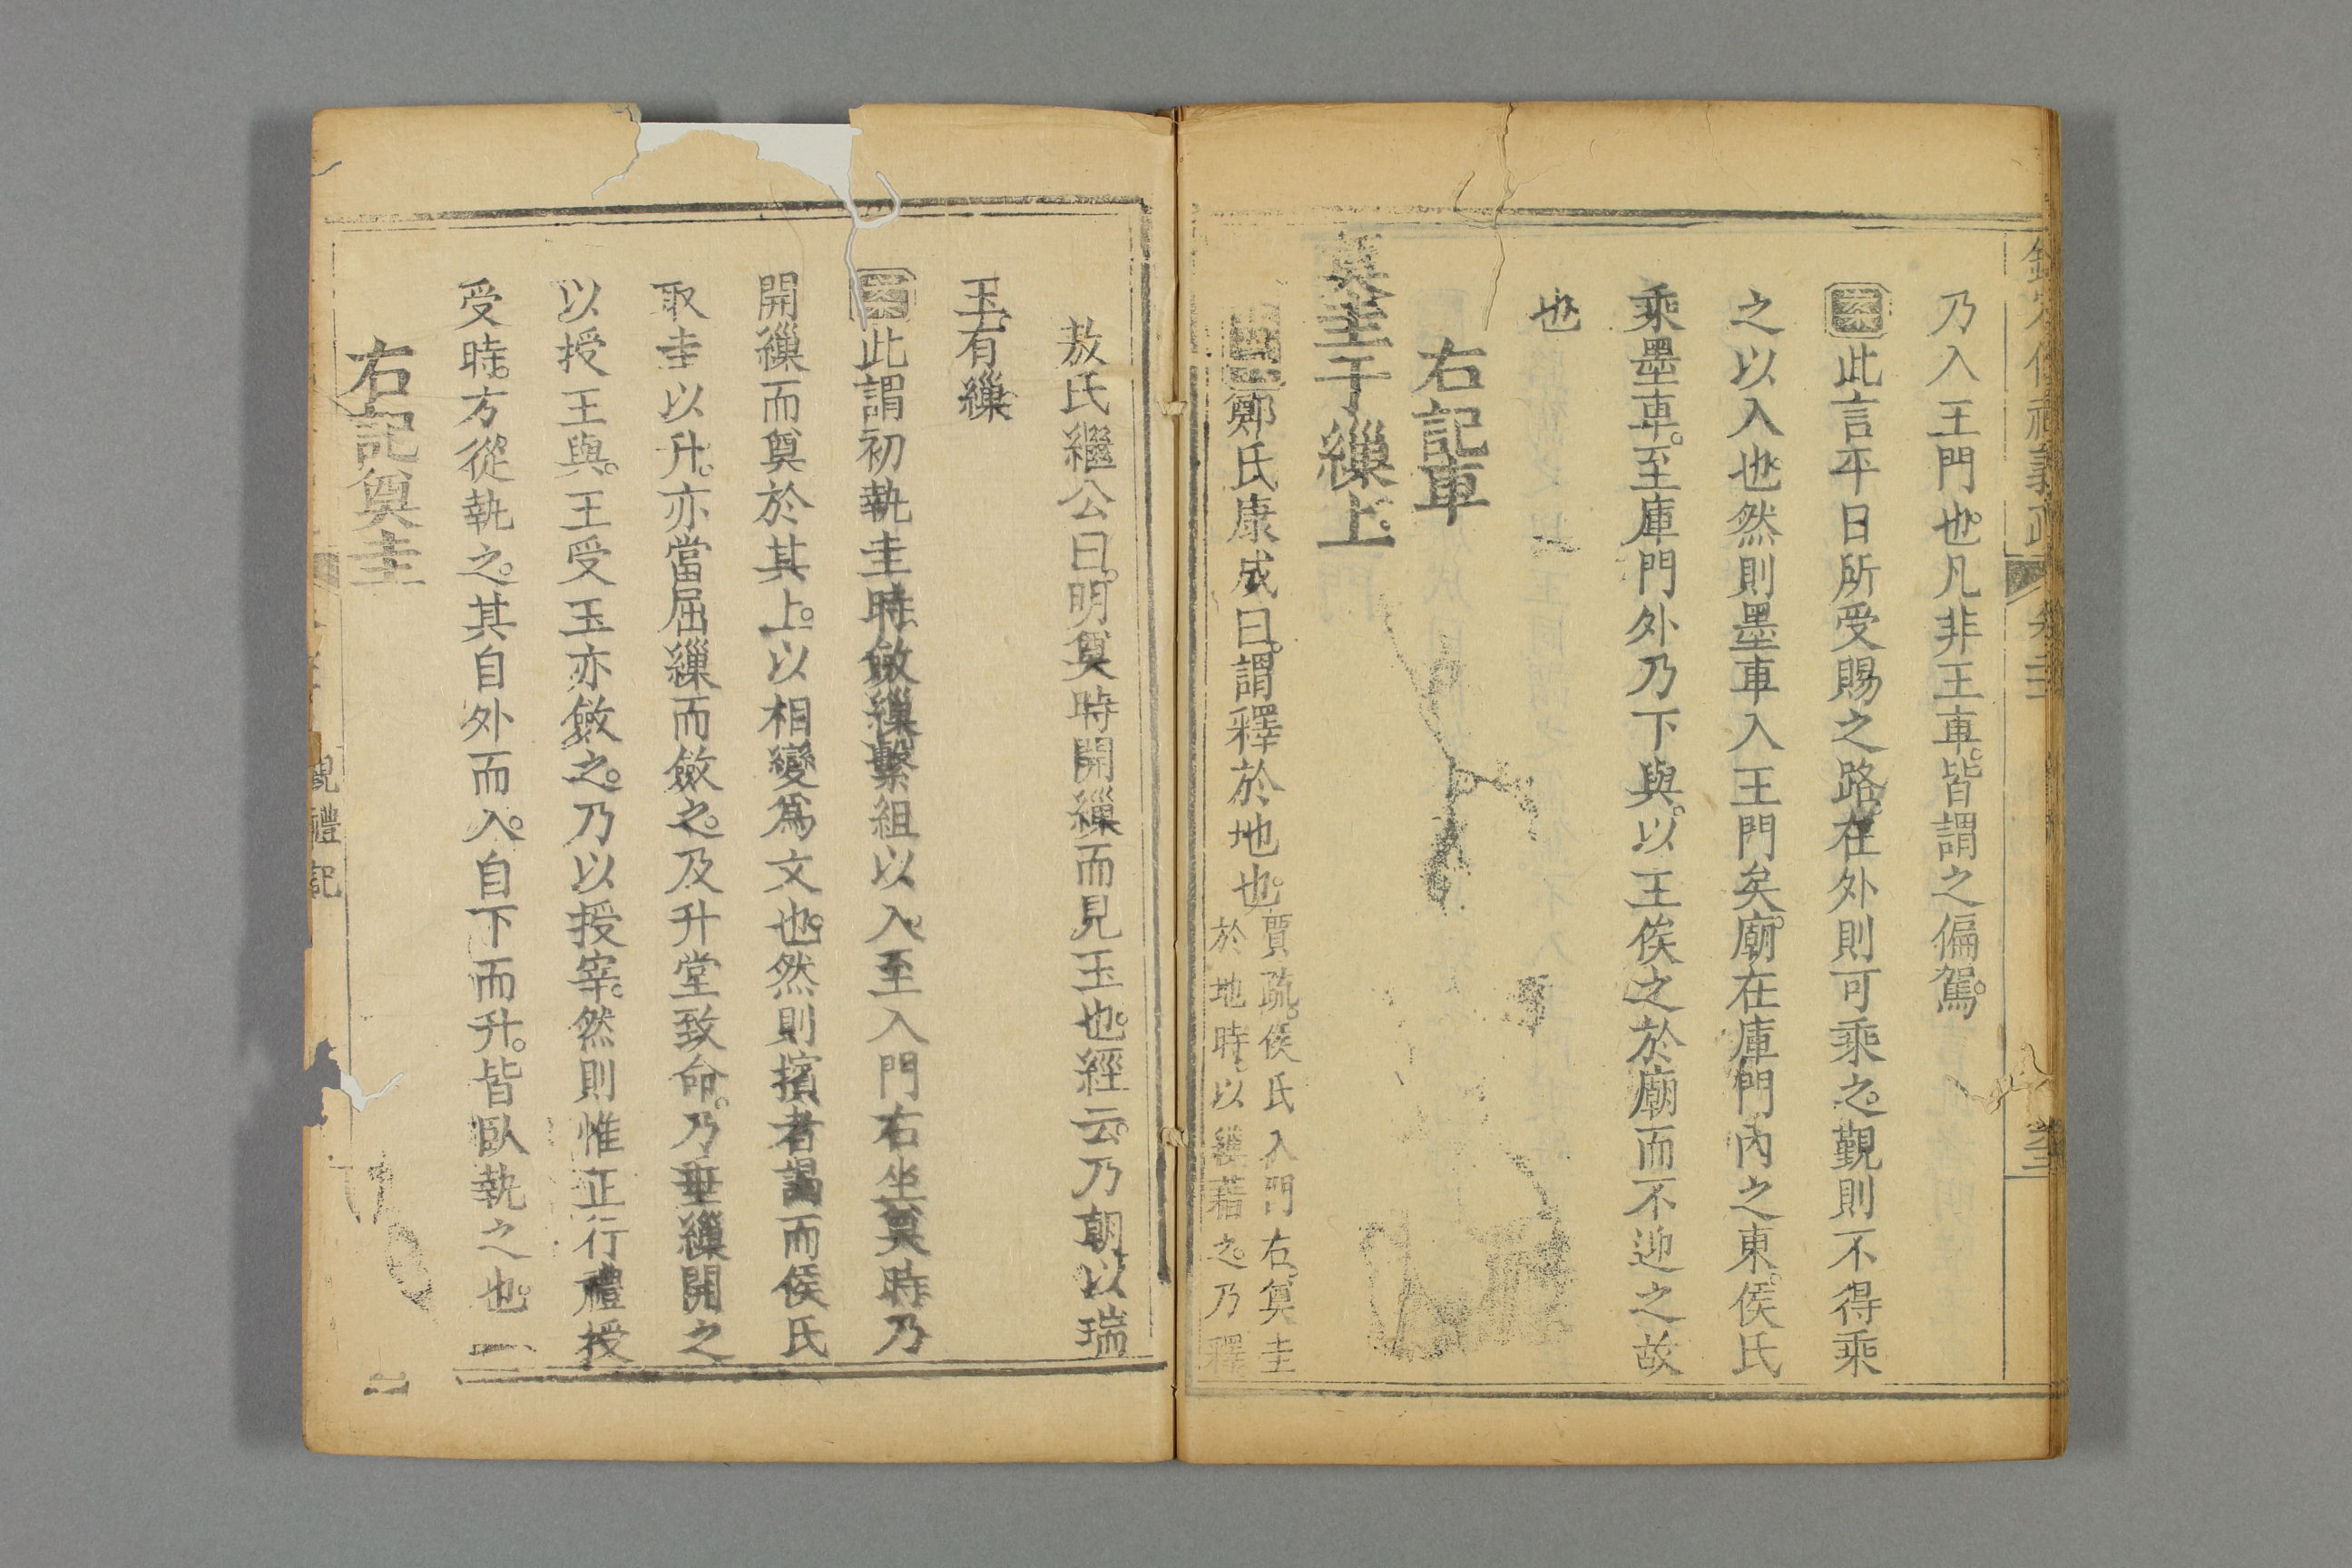 乃入王門也。凡非王車。皆謂之偏駕。
案此言平日所受賜之路。在外則可乘之。覲則不得乘
之以入也。然則墨車入王門矣。廟在庫門內之東。侯氏
乘墨車。至庫門外乃下與。以王俟之於廟而不迎之故
也
右記車
奠圭于繅上。
鄭氏康成曰。謂釋於地也。
賈疏。侯氏入門右。奠圭
於地時。以繅藉之。乃釋
敖氏繼公曰。明奠時開繅而見玉也。經云。乃朝以瑞
玉。有繅。
案此謂初執圭時。斂繅繫組以入。至入門右坐奠時。乃
開繅而奠於其上。以相變爲文也。然則擯者謁而侯氏
取圭以升。亦當屈繅而斂之。及升堂致命。乃垂繅開之
以授王與。王受玉亦斂之。乃以授宰。然則惟正行禮授
受時。方從執之。其自外而入。自下而升。皆臥執之也。
右記奠圭
覲禮記